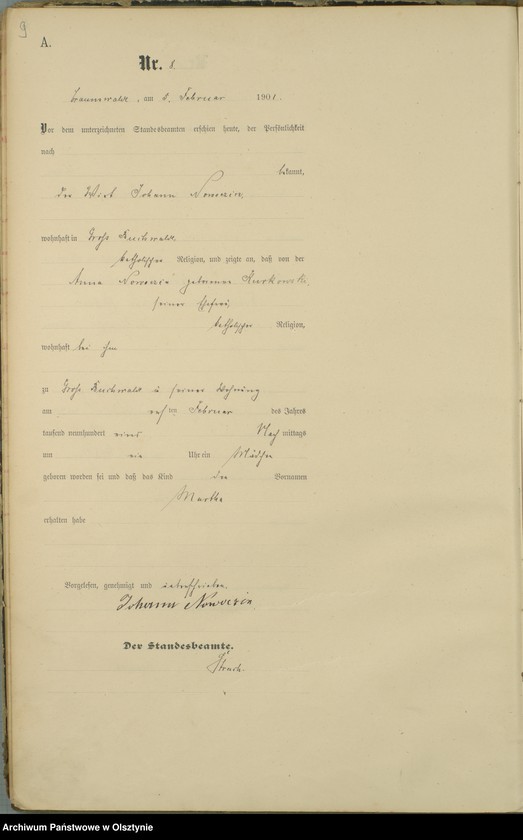 9
A.
Nr. 8.
Braunswalde, am 8. Februar 1901.
Vor dem unterzeichneten Standesbeamten erschien heute, der Persönlichkeit
nach
bekannt,
der Wirt Johann Nowozin,
wohnhaft in Groß Buchwalde,
katholischer Religion, und zeigte an, daß von der
Anna Nowozin geborenen Kurkowski,
seiner Ehefrau,
katholischer Religion,
wohnhaft bei ihm
zu Groß Buchwalde in seiner Wohnung
am ten Februar des Jahres
tausend neunhundert eins Nachmittags
um Uhr ein Mädchen
geboren worden sei und daß das Kind den Vornamen
Martha
erhalten habe
Vorgelesen, genehmigt und unterschrieben.
Johann Nowozin
Der Standesbeamte.
Archiwum Państwowe w Olsztynie